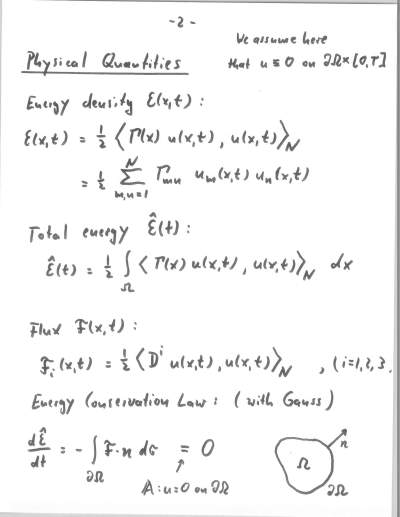 -2-
We assume here
that u ≡ 0 on ∂Ω×[0,T]
Physical Quantities
Energy density ℰ(x,t):
ℰ(x,t) = 1/2 ⟨Γ(x) u(x,t), u(x,t)⟩_N
= 1/2 ∑_{m,n=1}^{N} Γ_{mn} u_m(x,t) u_n(x,t)
Total energy ℰ̂(t):
ℰ̂(t) = 1/2 ∫_Ω ⟨Γ(x) u(x,t), u(x,t)⟩_N dx
Flux ℱ(x,t):
ℱ_i(x,t) = 1/2 ⟨D^i u(x,t), u(x,t)⟩_N , (i=1,2,3
Energy Conservation Law: (with Gauss)
dℰ̂/dt = - ∫_{∂Ω} ℱ·n dσ = 0
↑
A: u=0 on ∂Ω
Ω
n
∂Ω